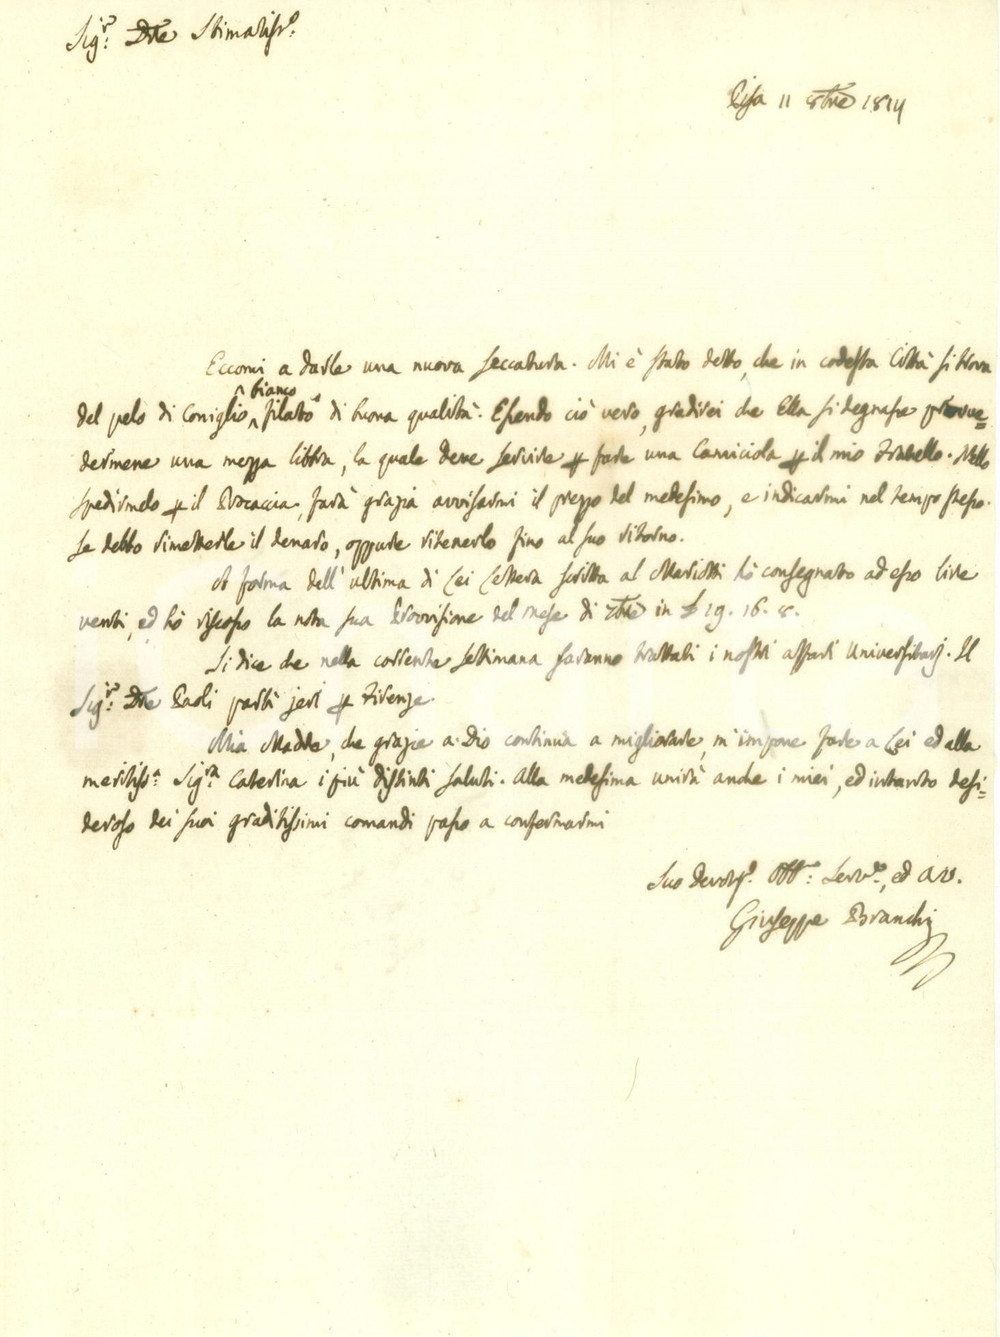 Sig.r Dre Stimatiss.o
Pisa 11 8bre 1814
Eccomi a darle una nuova seccatura. Mi è stato detto, che in codesta Città si trova
bianco
del pelo di Coniglio, filato di buona qualità. Essendo ciò vero, gradirei che Ella si degnasse provve=
dermene una mezza libbra, la quale deve servire p fare una Camiciola p il mio Fratello. Nello
spedirmelo p il Procaccia, farà grazia avvisarmi il prezzo del medesimo, e indicarmi nel tempo stesso.
se debbo rimetterle il denaro, oppure ritenerlo fino al suo ritorno.
A forma dell' ultima di Lei Lettera scritta al Mariotti hò consegnato ad esso lire
venti, ed hò riscosso la nota sua Provvisione del mese di 7bre in £ 19. 16. 8.
Si dice che nella corrente settimana saranno trattati i nostri affari Universitarj. Il
Sig.r Dre Paoli partì jeri p Firenze.
Mia Madre, che grazie a Dio continua a migliorare, m' impone fare a Lei ed alla
meritiss.a Sig.ra Caterina i più distinti saluti. Alla medesima unirà anche i miei, ed intanto desi=
deroso dei suoi graditissimi comandi passo a confermarmi
Suo Devotiss.o Obb.mo Serv.re, ed
Giuseppe Branchi